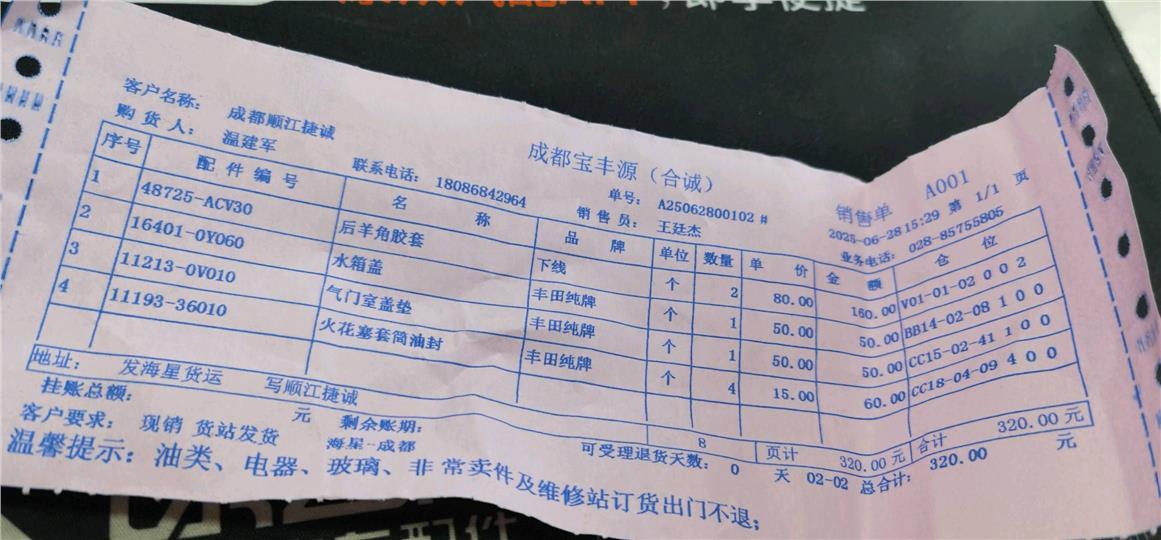 成都宝丰源（合诚） 销售单 A001
客户名称： 成都顺江捷诚 单号： A25062800102 # 2025-06-28 15:29 第 1/1 页
购 货 人： 温建军 联系电话： 18086842964 销 售 员： 王廷杰 业务电话： 028-85755805
序号 配 件 编 号 名 称 品 牌 单位 数量 单 价 金 额 仓 位
1 48725-ACV30 后羊角胶套 下线 个 2 80.00 160.00 V01-01-02 0 0 2
2 16401-0Y060 水箱盖 丰田纯牌 个 1 50.00 50.00 BB14-02-08 1 0 0
3 11213-0V010 气门室盖垫 丰田纯牌 个 1 50.00 50.00 CC15-02-41 1 0 0
4 11193-36010 火花塞套筒油封 丰田纯牌 个 4 15.00 60.00 CC18-04-09 4 0 0
8 页计 320.00 元 合计 320.00 元
地址： 发海星货运 写顺江捷诚
挂账总额： 元 剩余账期： 可受理退货天数： 0 天 02-02 总合计： 320.00 元
客户要求： 现销 货站发货 海星-成都
温馨提示：油类、电器、玻璃、非常卖件及维修站订货出门不退；